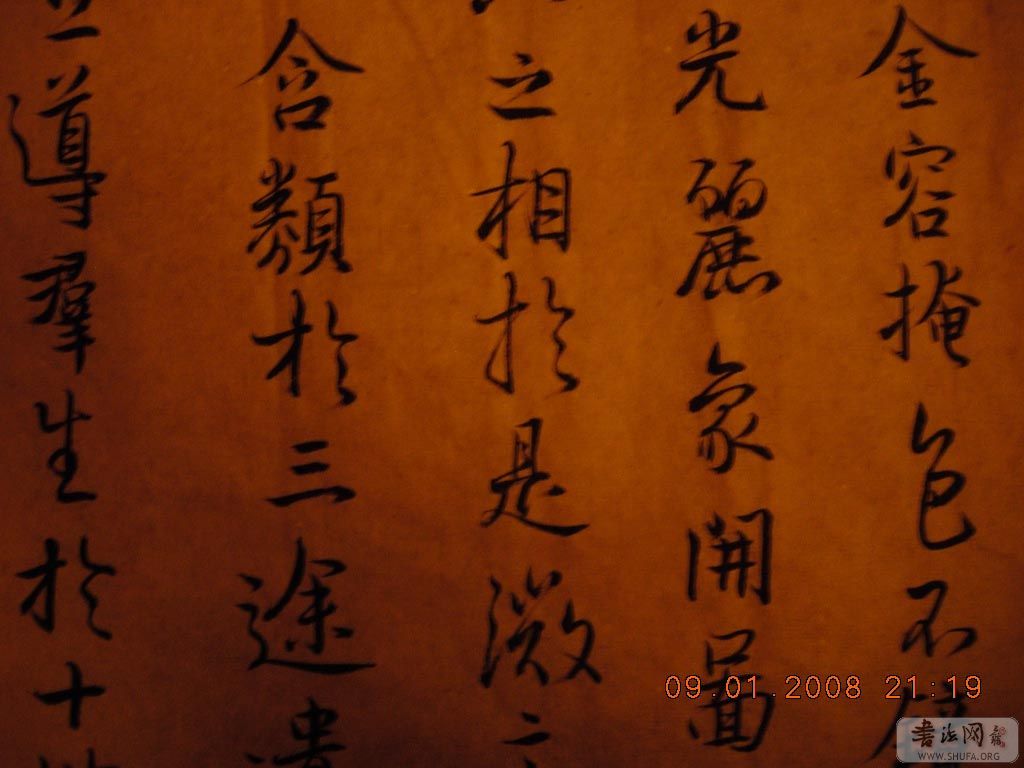 金容掩色不
光麗象開圖
之相於是微
含類於三途
導羣生於十
09.01.2008 21:19
書法网
WWW.SHUFA.ORG